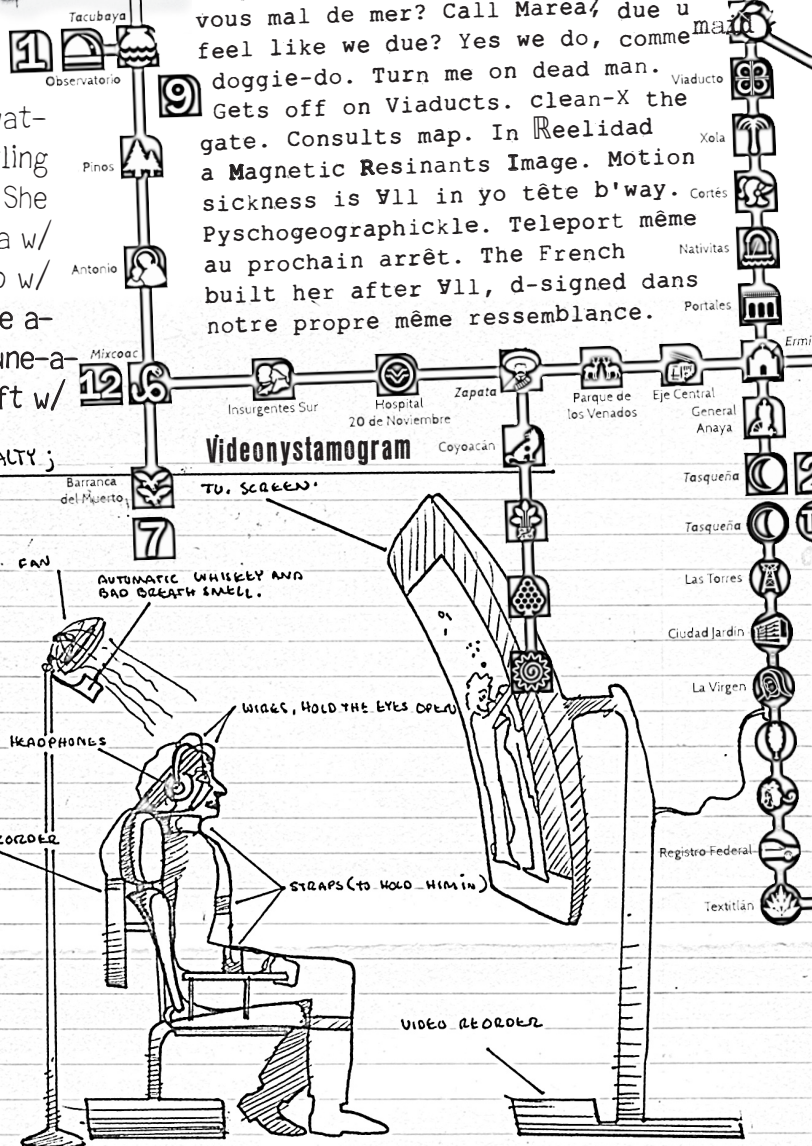 Tacubaya
1
Observatorio
9
vous mal de mer? Call Marea, due u
feel like we due? Yes we do, comme
doggie-do. Turn me on dead man.
Gets off on Viaducts. clean-X the
gate. Consults map. In ℝeelidad
a Magnetic Resinants Image. Motion
sickness is ∀ll in yo tête b'way.
Pyschogeographickle. Teleport même
au prochain arrêt. The French
built her after ∀ll, d-signed dans
notre propre même ressemblance.
Viaducto
Xola
Cortés
Nativitas
Portales
Ermi
Pinos
Antonio
Mixcoac
12
at-
ling
She
a w/
w/
e a-
une-a-
ft w/
ALTY;
Insurgentes Sur
Hospital
20 de Noviembre
Zapata
Parque de
los Venados
Eje Central
General
Anaya
Coyoacán
Barranca
del Muerto
7
Tasqueña
2
Tasqueña
Las Torres
Ciudad Jardín
La Virgen
Registro Federal
Textitlán
Videonystamogram
TV. SCREEN.
FAN
AUTOMATIC WHISKEY AND
BAD BREATH SMELL.
WIRES, HOLD THE EYES OPEN
HEADPHONES
ORDER
STRAPS (TO HOLD HIM IN)
VIDEO REORDER